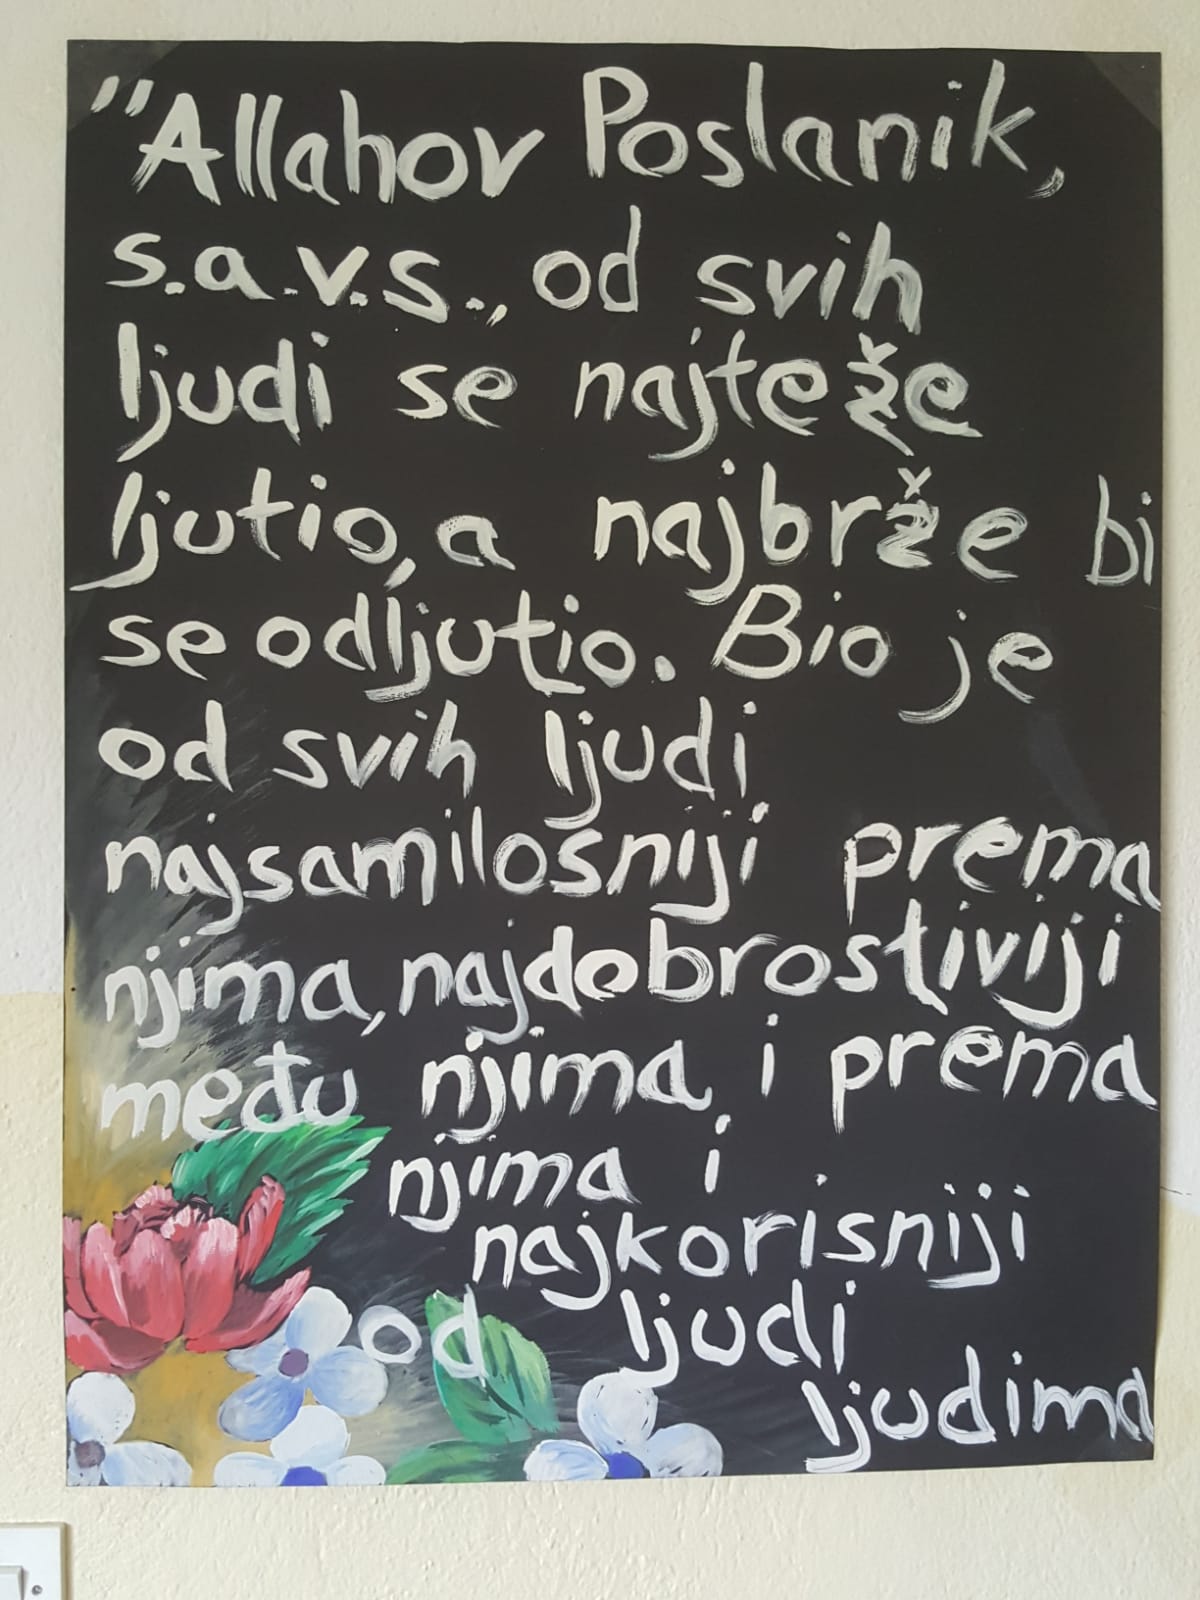 "Allahov Poslanik,
s.a.v.s., od svih
ljudi se najteže
ljutio, a najbrže bi
se odljutio. Bio je
od svih ljudi
najsamilosniji prema
njima, najdobrostiviji
među njima i prema
njima i
najkorisniji
od ljudi
ljudima